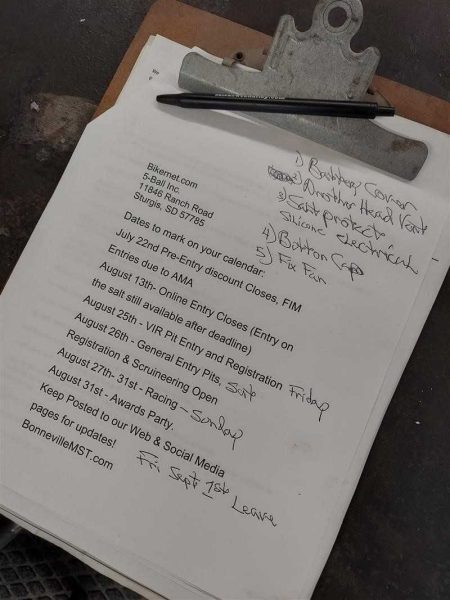 Bikernet.com
5-Ball Inc.
11846 Ranch Road
Sturgis, SD 57785
1) Battery Cover
2) Another Head Vent
3) Salt protect
Silicone electrical
4) Bottom Cap
5) Fix Fan
Dates to mark on your calendar:
July 22nd Pre-Entry discount Closes, FIM
Entries due to AMA
August 13th- Online Entry Closes (Entry on
the salt still available after deadline)
August 25th - VIR Pit Entry and Registration Friday
August 26th - General Entry Pits, Sat
Registration & Scruineering Open
August 27th- 31st - Racing - Sunday
August 31st - Awards Party.
Keep Posted to our Web & Social Media
pages for updates!
BonnevilleMST.com
Fri Sept 1st Leave